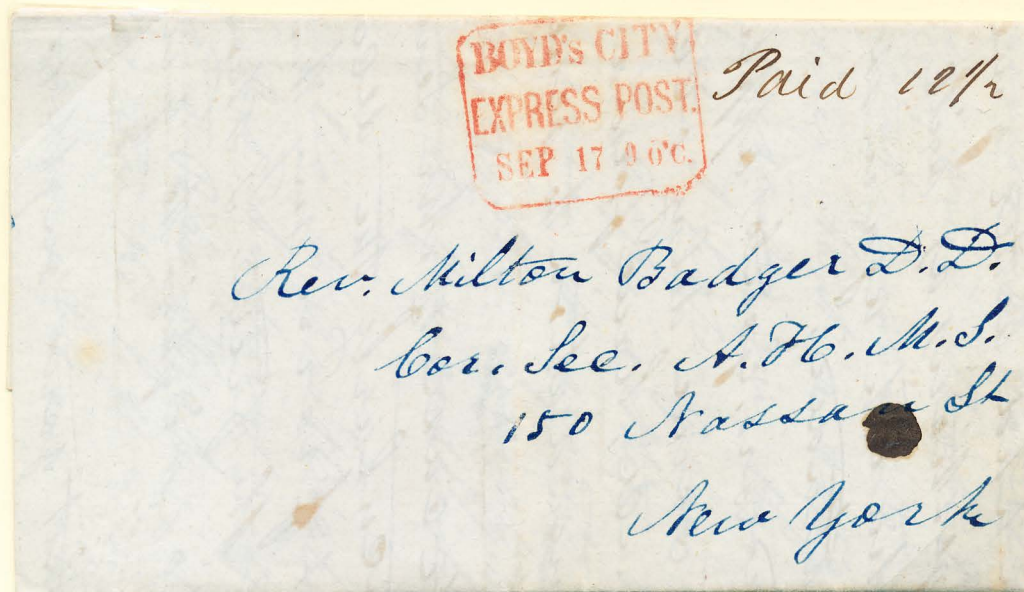 BOYD's CITY
EXPRESS POST.
SEP 17 9 o'c.
Paid 12 1/2
Rev. Milton Badger D.D.
Cor. Sec. A. H. M. S.
150 Nassau St
New York